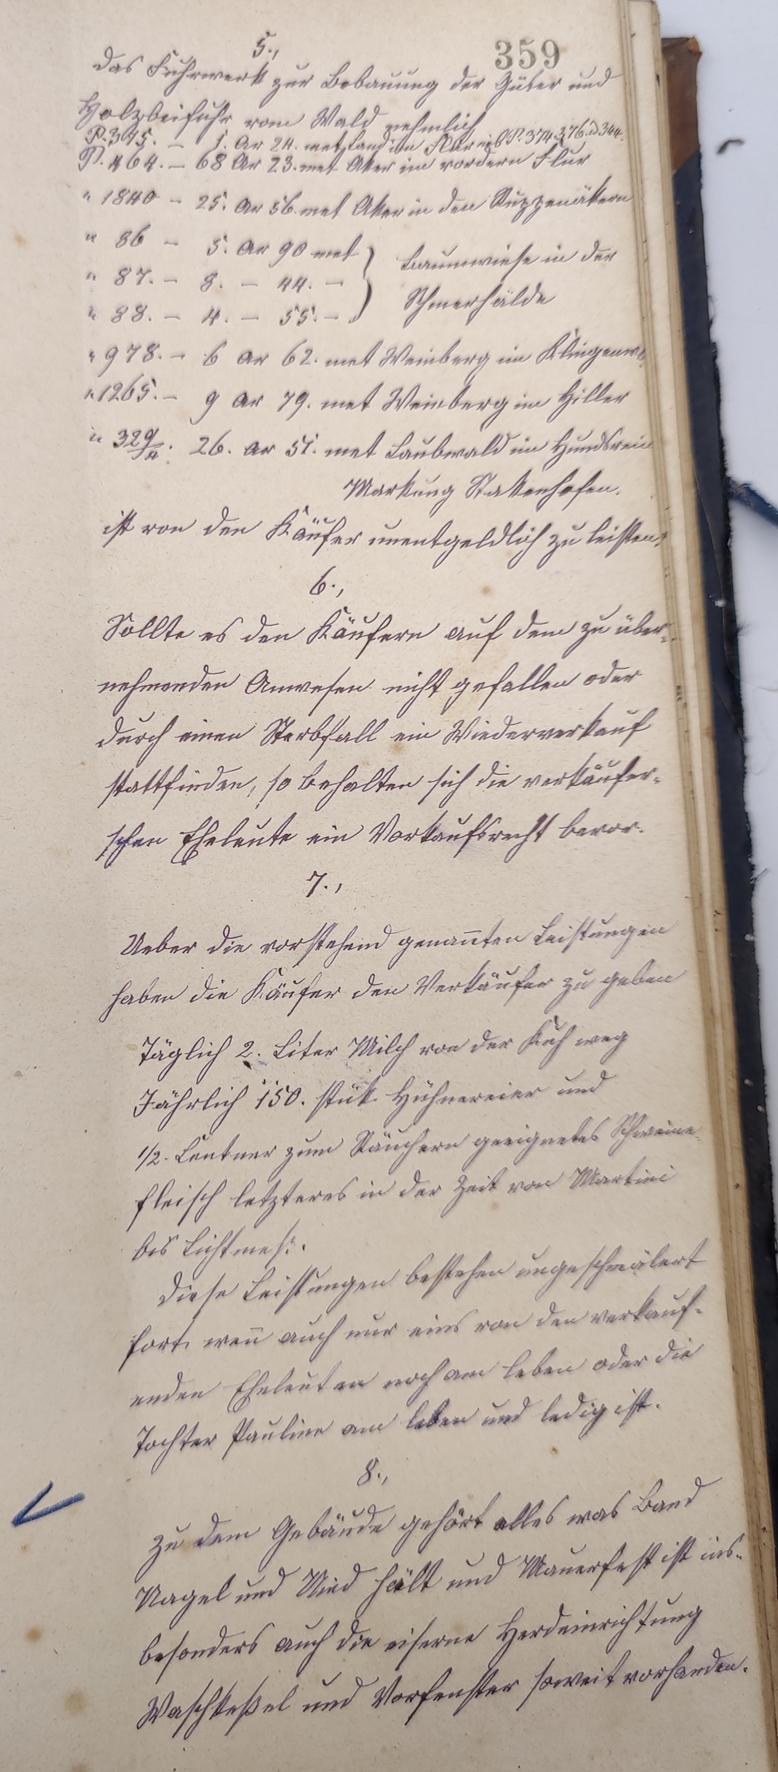 359
5.,
Das Fuhrwerk zur Bebauung der Güter und
Holzbeifuhr vom Wald nehmlich
P. 345. – 1. Ar 24. met Land im P. 374. 376. u 344.
P. 464. – 68 Ar 23. met Aker im vordern Flur
" 1840 – 25. Ar 56. met Aker in den Kuppenäkern
" 86 – 5. Ar 90 met
" 87. – 8. – 44. –
" 88. – 4. – 55. –
Baumwiese in der
Schmerhälde
" 978. – 6 Ar 62. met Weinberg im
" 1265. – 9 Ar 79. met Weinberg im Hiller
" 329/. 26. Ar 51. met Laubwald im Hundsrein
Markung Stakenhofen.
ist von den Käufer unentgeldlich zu leisten.
6.,
Sollte es den Käufern auf dem zu über-
nehmenden Anwesen nicht gefallen oder
durch einen Sterbfall ein Wiederverkauf
stattfinden, so behalten sich die verkäufer-
schen Eheleute ein Vorkaufsrecht bevor.
7.,
Ueber die vorstehend genannten Leistungen
haben die Käufer den Verkäufer zu geben
Täglich 2. Liter Milch von der Kuh weg
Jährlich 150. stük Hühnereier und
1/2. Centner zum Räuchern geeignetes Schweine-
fleisch letzteres in der Zeit von Martini
bis Lichtmeß.
Diese Leistungen bestehen ungeschmälert
fort, wen̄ auch nur eins von den verkauf-
enden Eheleuten noch am Leben oder die
Tochter Pauline am Leben und ledig ist.
8.,
Zu dem Gebäude gehört alles was Band
Nagel und Nied hält und Mauerfest ist ins-
besonders auch die eiserne Herdeinrichtung
Waschkeßel und Vorfenster soweit vorhanden.